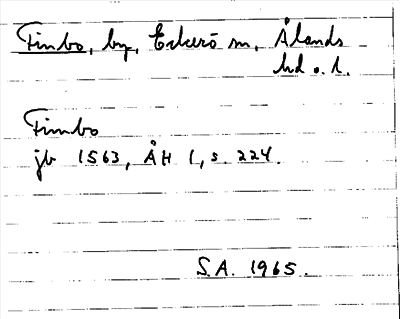 Finbo, by, Eckerö sn, Ålands
hd o. l.
Finnbo
jb 1563, ÅH 1, s. 224.
S.A. 1965.